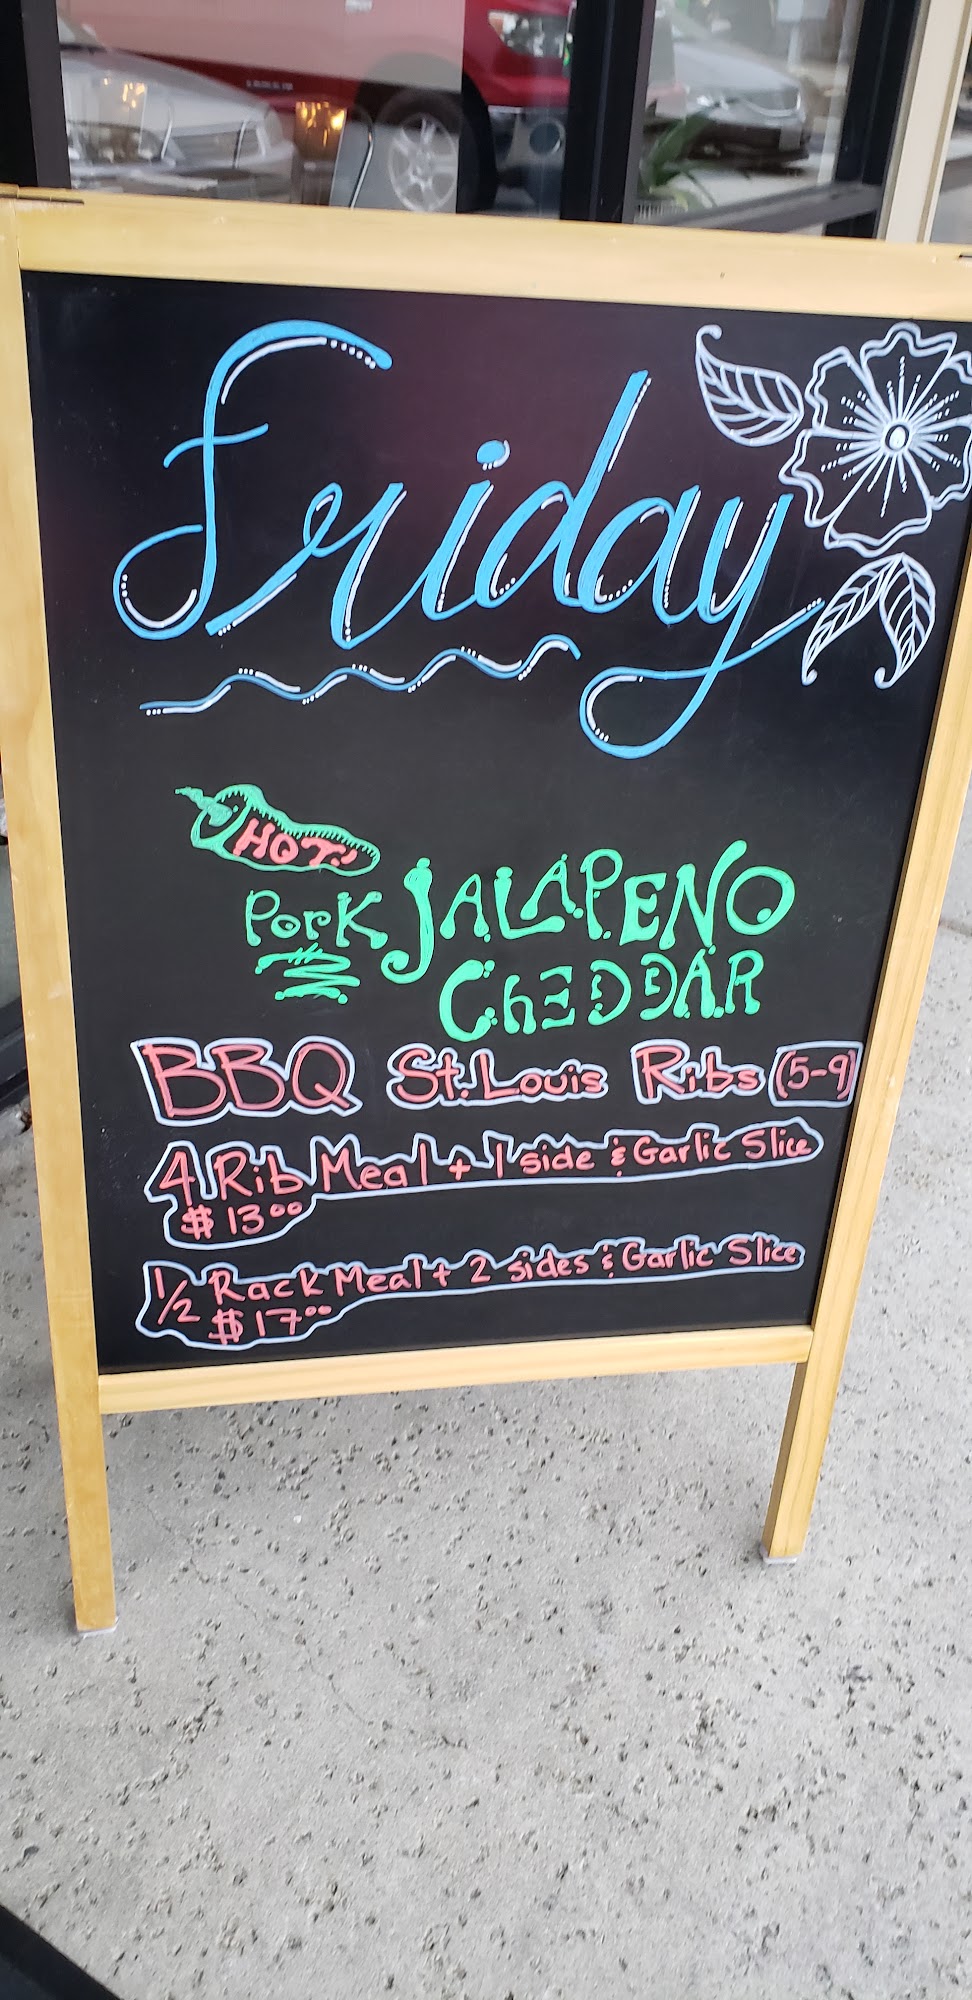 Friday
HOT!
Pork JALAPENO
ChEDDAR
BBQ St. Louis Ribs (5-9)
4 Rib Meal + 1 side & Garlic Slice
$13.00
1/2 Rack Meal + 2 sides & Garlic Slice
$17.00